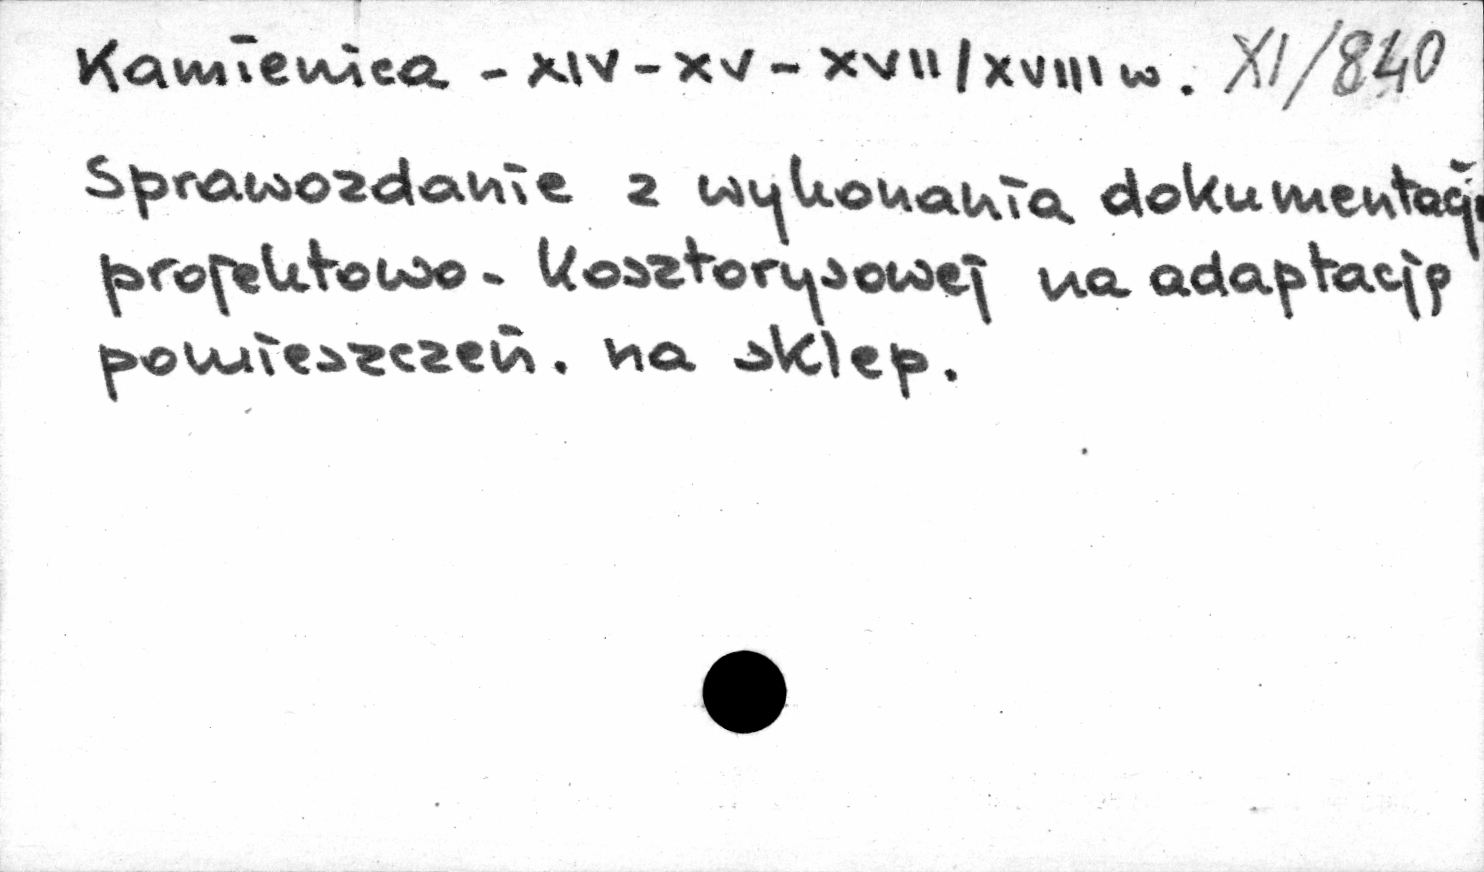 Kamienica - XIV - XV - XVII/XVIII w. XI/840
Sprawozdanie z wykonania dokumentacji
projektowo - kosztorysowej na adaptację
pomieszczeń. na sklep.